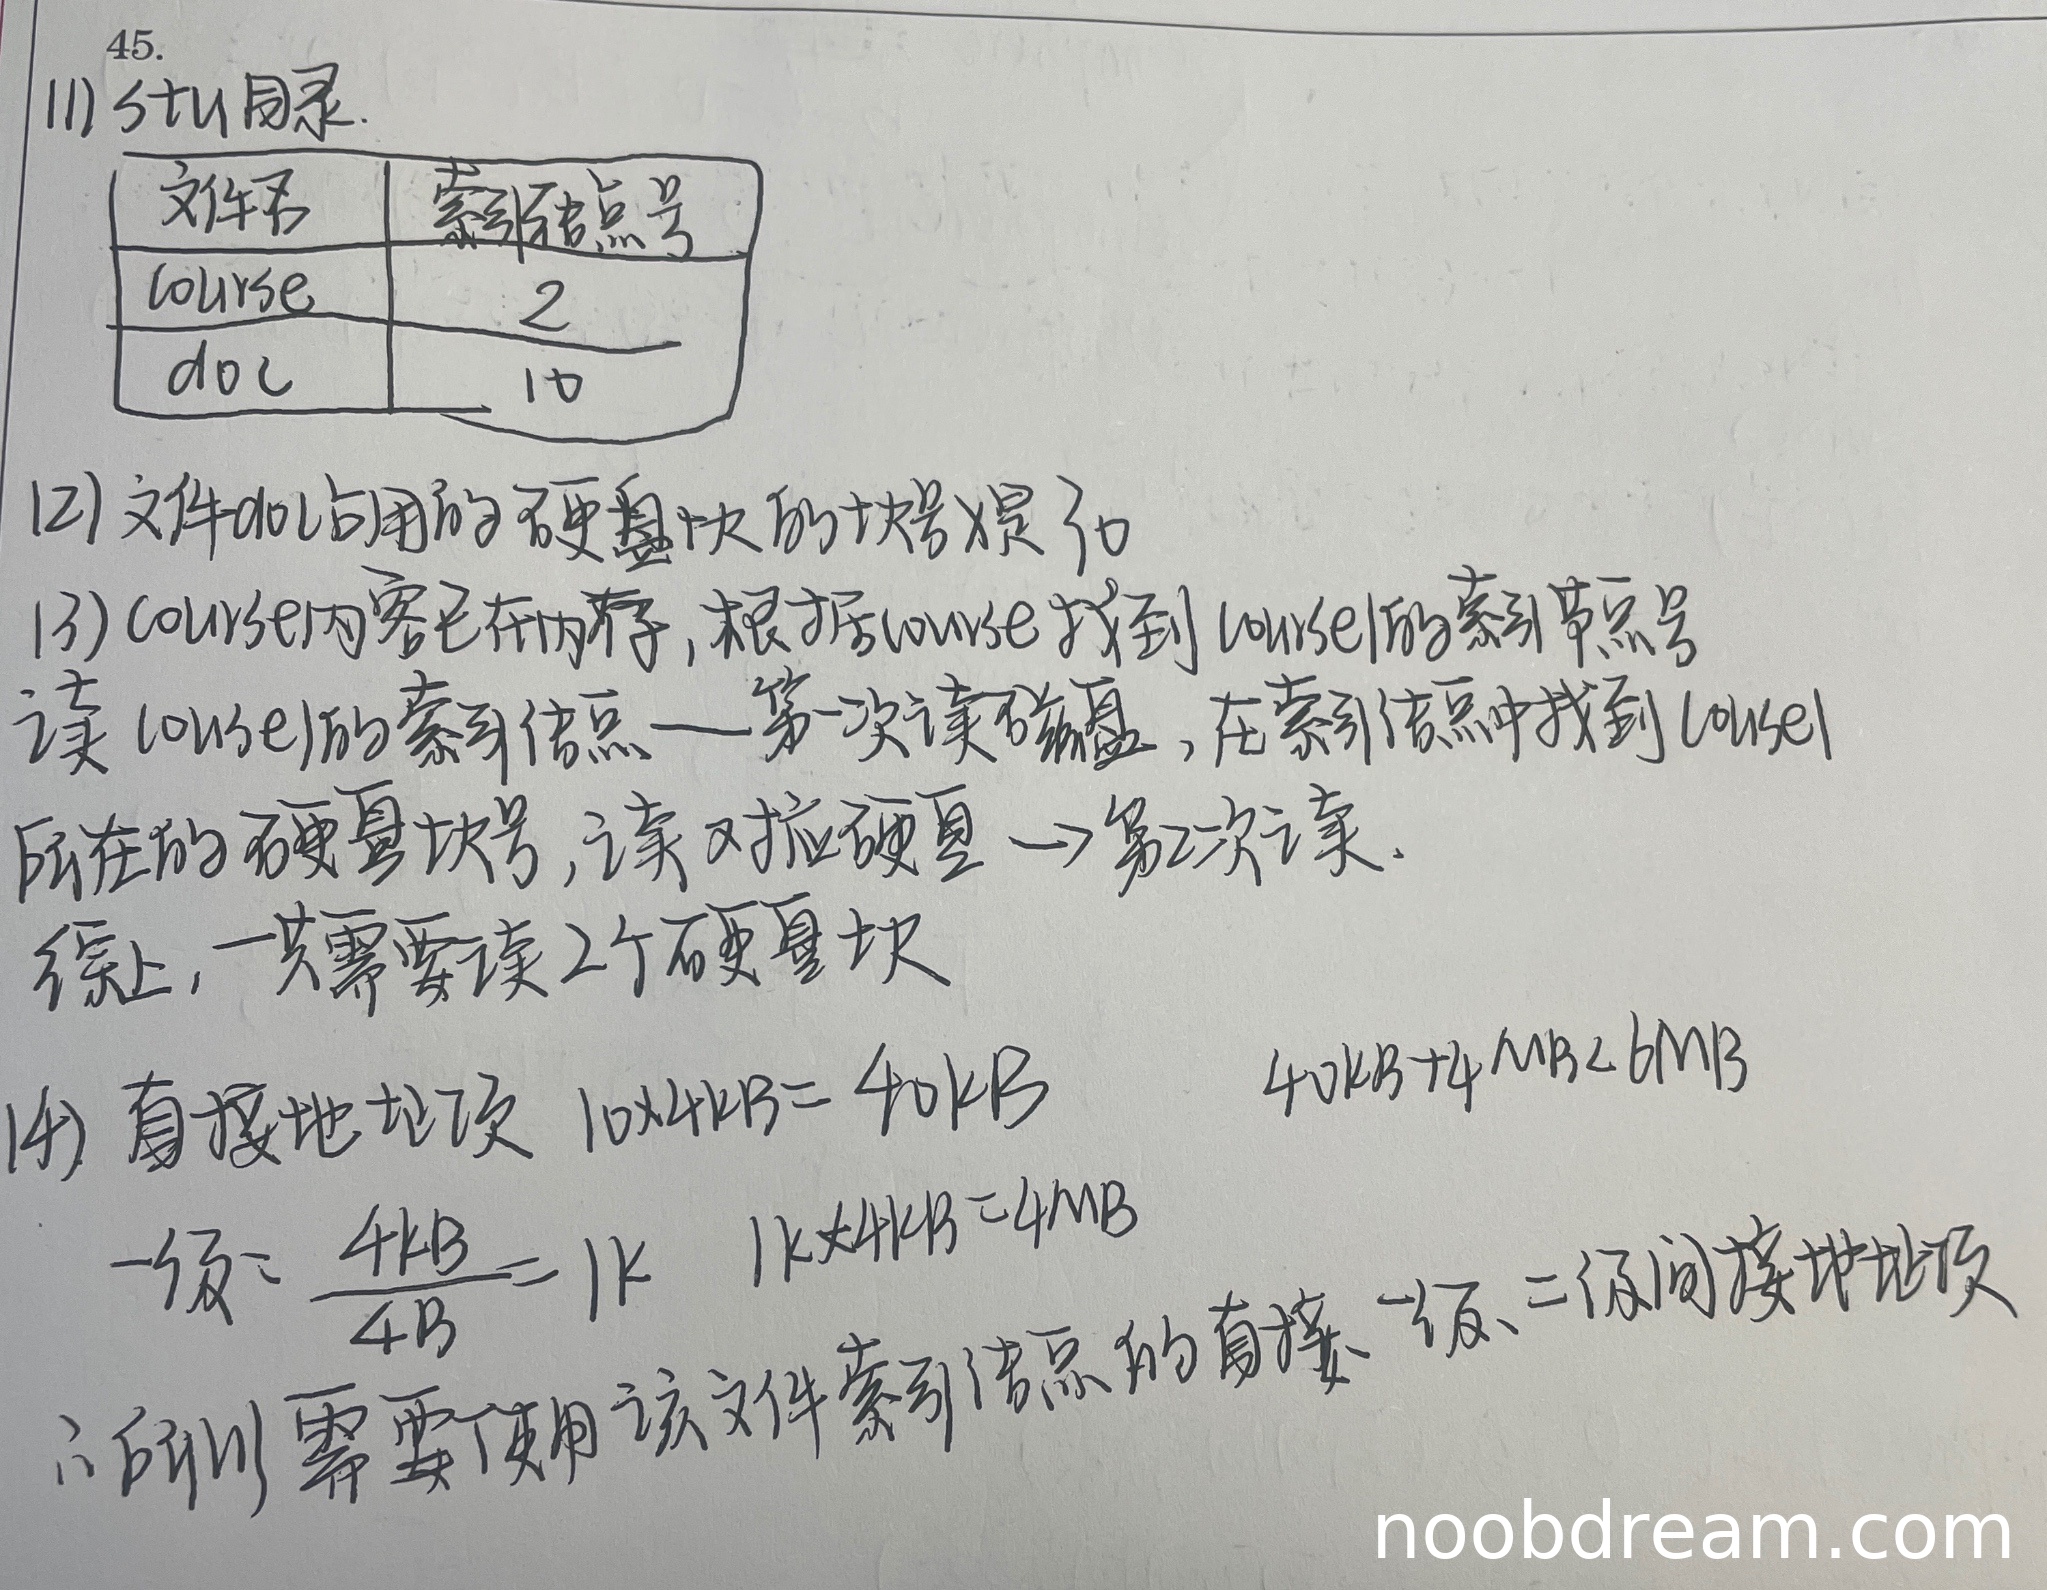 45.
(1) stu目录.
文件名 索引结点号
course 2
doc 10
(2) 文件doc占用的硬盘块的块号是30
(3) course内容已在内存,根据course找到course1的索引节点号
读course1的索引结点——第一次读磁盘,在索引结点中找到couse1
所在的硬盘块号,读对应硬盘→第2次读.
综上,一共需要读2个硬盘块
(4) 直接地址项 10×4KB=40KB 40KB+4MB<6MB
一级: 4KB/4B=1K 1K×4KB=4MB
∴所以需要使用该文件索引结点的直接、一级、二级间接地址项
noobdream.com